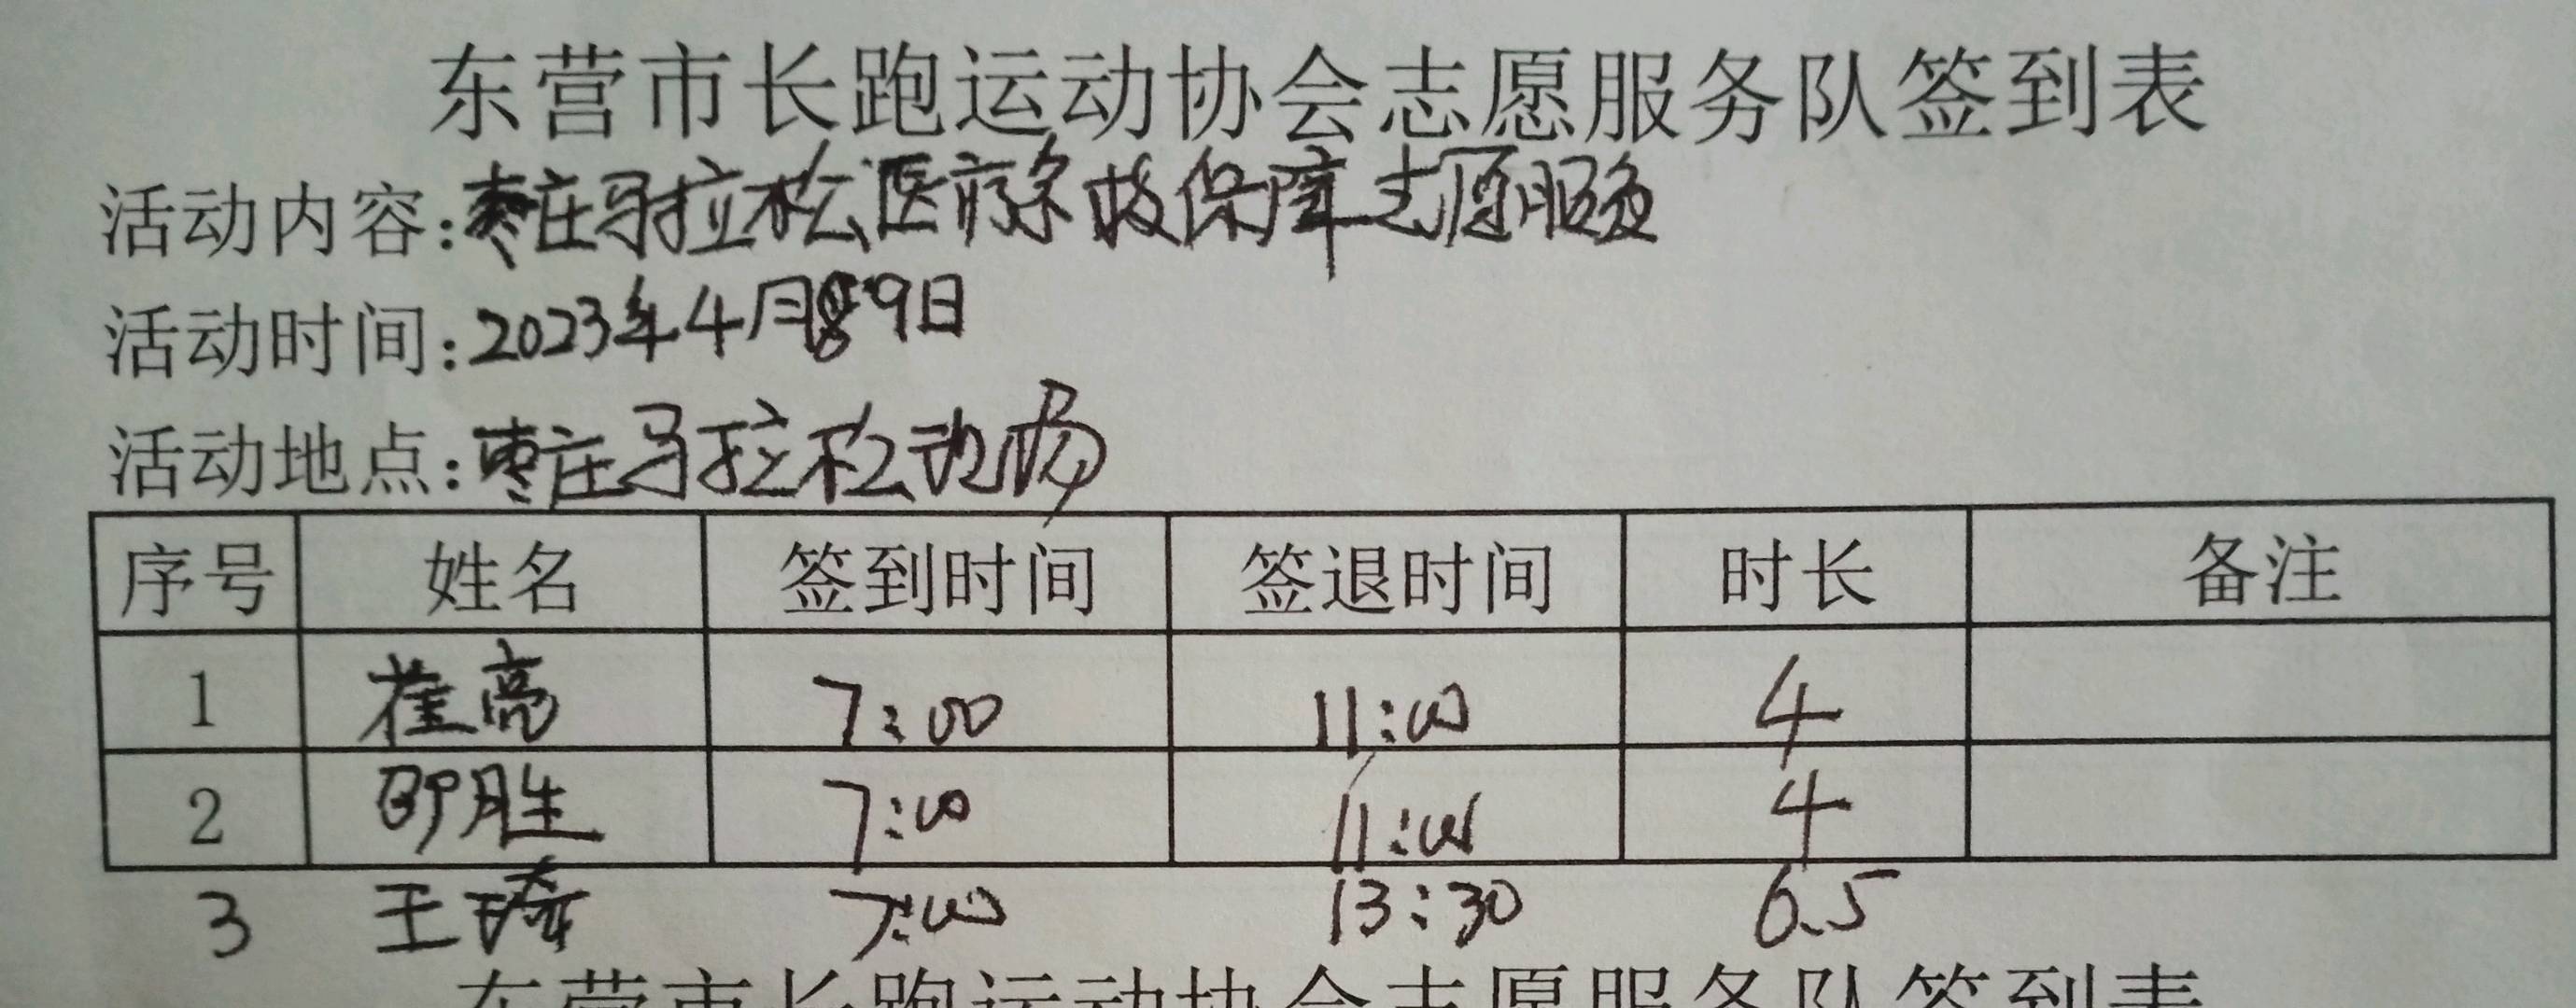 东营市长跑运动协会志愿服务队签到表
活动内容:枣庄马拉松医疗急救保障志愿服务
活动时间:2023年4月9日
活动地点:枣庄马拉松现场
序号 姓名 签到时间 签退时间 时长 备注
1 崔亮 7:00 11:00 4
2 邵胜 7:00 11:00 4
3 王 7:00 13:30 6.5
东营市长跑运动协会志愿服务队签到表